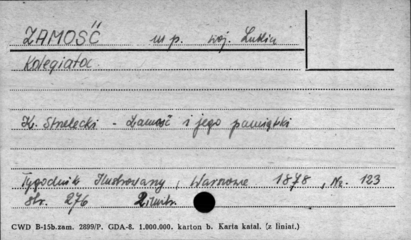 ZAMOŚĆ m p. woj. Lublin
Kolegiata
K. Strelecki - Zamość i jego pamiątki
Tygodnik Ilustrowany, Warszawa 1878, Nr. 123
str. 276
CWD B-15b.zam. 2899/P. GDA-8. 1.000.000. karton b. Karta katal. (z liniat.)